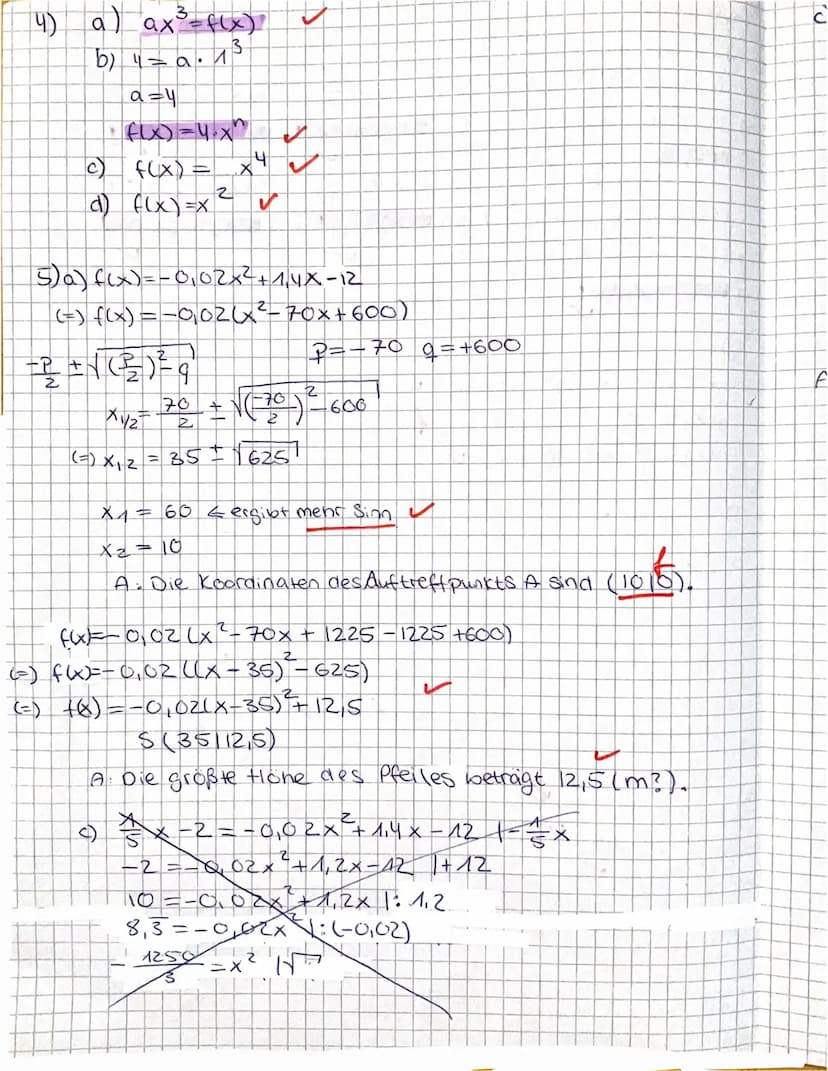 4) a) ax³=f(x) ✓
b) 4=a·1³
a=4
f(x)=4·xⁿ ✓
c) f(x)= x⁴ ✓
d) f(x)=x² ✓
5)a) f(x)=-0,02x²+1,4x-12
(=) f(x)=-0,02(x²-70x+600)
p=-70 q=+600
-p/2 ± √((p/2)²-q)
x₁/₂= 70/2 ± √((-70/2)²-600)
(=) x₁,₂ = 35 ± √625
x₁ = 60 ← ergibt mehr Sinn ✓
x₂ = 10
f
A: Die Koordinaten des Auftreffpunkts A sind (10|0).
f(x)=-0,02(x²-70x+1225-1225+600)
(=) f(x)=-0,02((x-35)²-625)
(=) f(x)=-0,02(x-35)²+12,5 ✓
S(35|12,5)
A: Die größte Höhe des Pfeiles beträgt 12,5(m?). ✓
c) 1/5 x -2 = -0,02x²+1,4x-12 |-1/5 x
-2 = -0,02x²+1,2x-12 |+12
10 = -0,02x²+1,2x |: 1,2
8,3̅ = -0,02x² |: (-0,02)
- 1250/3 = x² |√